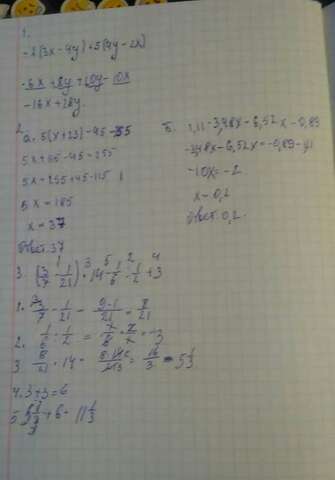 1.
-2(3x-4y)+5(4y-2x)
-6x+8y+20y-10x
-16x+28y.
2.
а. 5(x+23)-45=255
5x+115-45=255
5x=255+45-115
5x=185
x=37
Ответ.37
Б. 1,11-3,48x-6,52x=-0,89
-3,48x-6,52x=-0,89-1,11
-10x=-2
x=0,2
Ответ.0,2.
3. (3/7-1/21)·14-1/6:1/2+3
1. 3/7-1/21=9-1/21=8/21
2. 1/6:1/2=
3 8/21·14=16/3=5 1/3
4. 3+3=6
5. 5 1/3+6=11 1/3